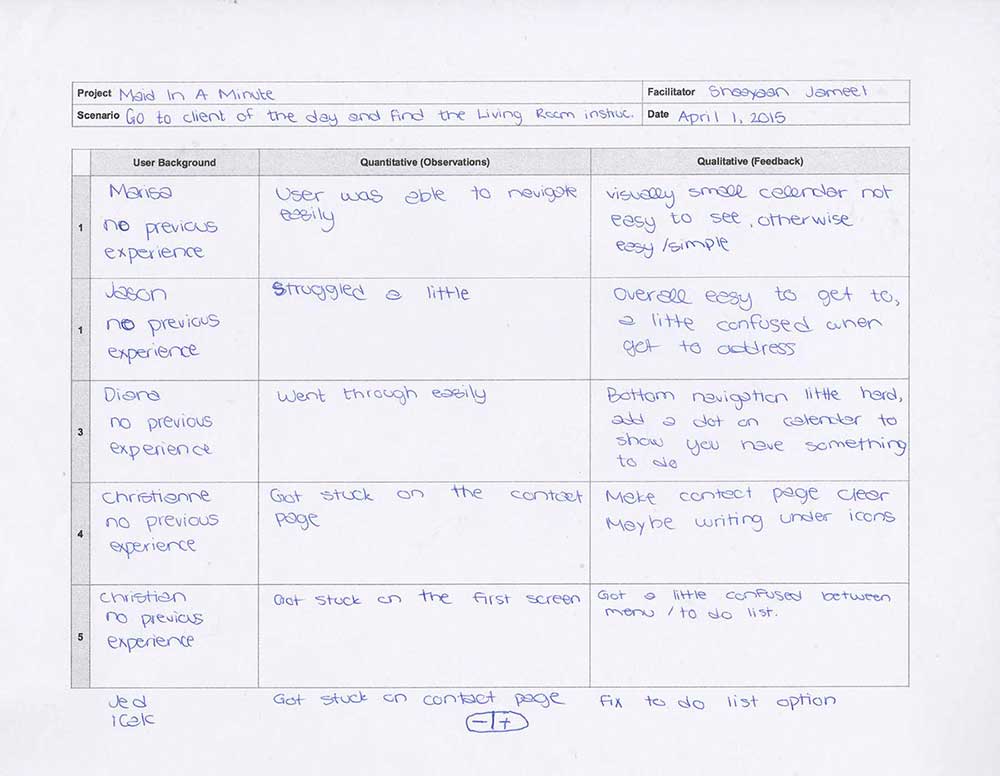 Project Maid In A Minute Facilitator Shaayaan Jameel
Scenario Go to client of the day and find the Living Room instruc. Date April 1, 2015
User Background Quantitative (Observations) Qualitative (Feedback)
1
Marisa
no previous
experience
User was able to navigate
easily
visually small calendar not
easy to see, otherwise
easy/simple
1
Jason
no previous
experience
Struggled a little
Overall easy to get to,
a litte confused when
get to address
3
Diana
no previous
experience
Went through easily
Bottom navigation little hard,
add a dot on calendar to
show you have something
to do
4
Christienne
no previous
experience
Got stuck on the contact
page
Make contact page clear
Maybe writing under icons
5
Christian
no previous
experience
Got stuck on the first screen
Got a little confused between
menu / to do list.
Jed
Got stuck on contact page
fix to do list option
-|+